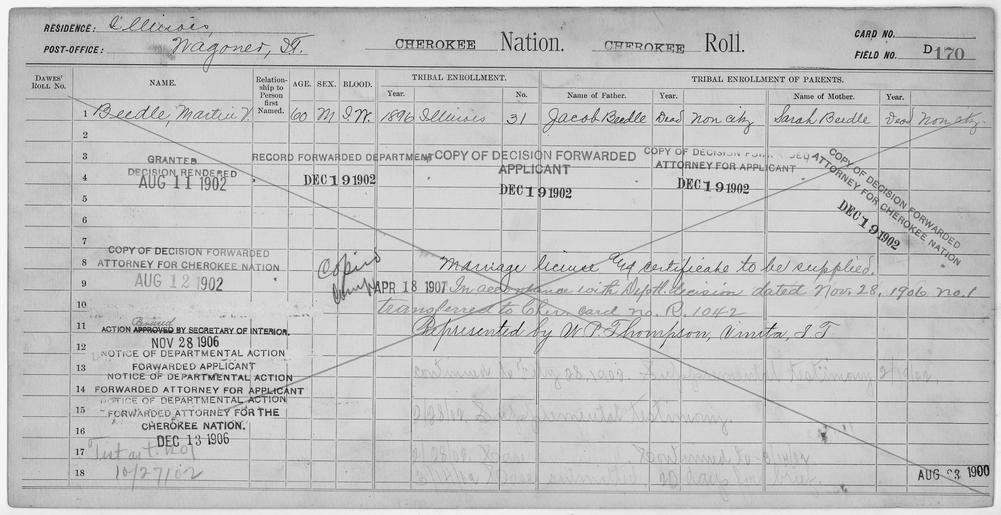 RESIDENCE: Illinois,
POST-OFFICE: Wagoner, I.T.
CHEROKEE Nation. CHEROKEE Roll.
CARD NO.
FIELD NO. D170
DAWES' ROLL NO. NAME. Relationship to Person first Named. AGE. SEX. BLOOD. TRIBAL ENROLLMENT. TRIBAL ENROLLMENT OF PARENTS.
Year. No. Name of Father. Year. Name of Mother. Year.
1 Beedle, Martin V. 60 M I.W. 1896 Illinois 31 Jacob Beedle Dead Non citz Sarah Beedle Dead Non citz.
2
3
4
5
6
7
8
9
10
11
12
13
14
15
16
17
18
GRANTED
DECISION RENDERED
AUG 11 1902
RECORD FORWARDED DEPARTMENT
DEC 19 1902
COPY OF DECISION FORWARDED
APPLICANT
DEC 19 1902
COPY OF DECISION FORWARDED
ATTORNEY FOR APPLICANT
DEC 19 1902
COPY OF DECISION FORWARDED
ATTORNEY FOR CHEROKEE NATION
DEC 19 1902
COPY OF DECISION FORWARDED
ATTORNEY FOR CHEROKEE NATION
AUG 12 1902
Marriage license and certificate to be supplied.
APR 18 1907 In accordance with Dept'l decision dated Nov. 28, 1906 no. 1
transferred to Cher. card no. R. 1042
Represented by W P Thompson, Vinita, I T
ACTION APPROVED BY SECRETARY OF INTERIOR.
NOV 28 1906
NOTICE OF DEPARTMENTAL ACTION
FORWARDED APPLICANT
NOTICE OF DEPARTMENTAL ACTION
FORWARDED ATTORNEY FOR APPLICANT
NOTICE OF DEPARTMENTAL ACTION
FORWARDED ATTORNEY FOR THE
CHEROKEE NATION.
DEC 13 1906
10/27/02
Supplemental testimony
AUG 23 1900